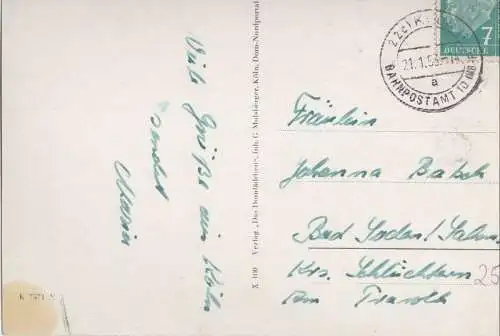 Viele Grüße aus Köln
sendet
Maria
X 100 Verlag „Das Domlädchen", Inh. C. Mulsberger, Köln, Dom-Nordportal
(22c) KÖLN
21.1.55
a
BAHNPOSTAMT 10
7
DEUTSCHE
Fräulein
Johanna
Bad Soden/Salm.
Krs. Schlüchtern
Am
25
K 7571